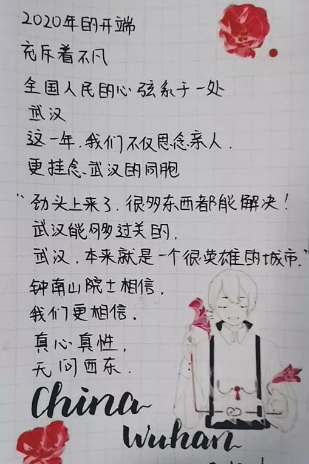 2020年的开端
充斥着不凡
全国人民的心弦系于一处
武汉
这一年,我们不仅思念亲人,
更挂念武汉的同胞
“劲头上来了,很多东西都能解决!
武汉能够过关的,
武汉,本来就是一个很英雄的城市.”
钟南山院士相信,
我们更相信.
真心真性,
无问西东.
China
Wuhan